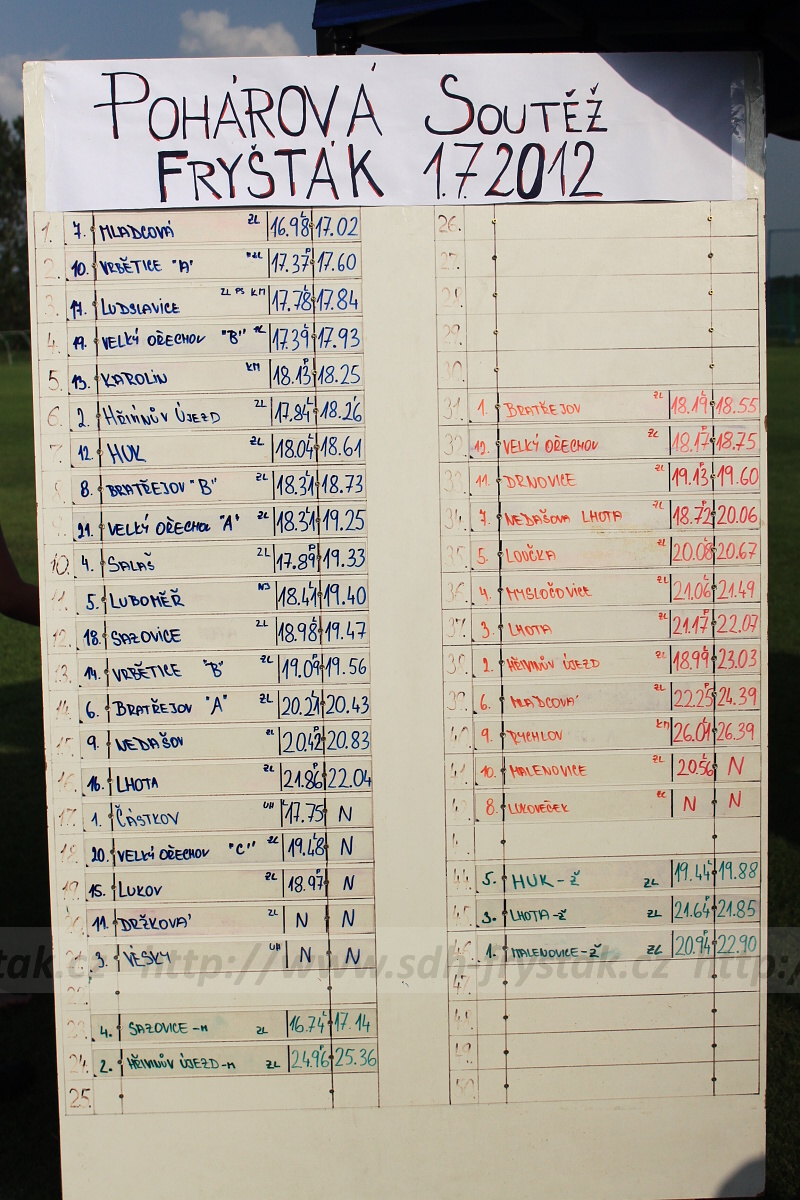 POHÁROVÁ SOUTĚŽ
FRYŠTÁK 1.7.2012
1. 7. MLADCOVÁ ZL 16.98 L 17.02
2. 10. VRBĚTICE "A" 17.37 P 17.60
3. 17. LUDSLAVICE ZL PS KM 17.78 L 17.84
4. 19. VELKÝ OŘECHOV "B" ZL 17.39 L 17.93
5. 13. KAROLÍN KM 18.13 P 18.25
6. 2. HŘIVÍNŮV ÚJEZD ZL 17.84 L 18.26
7. 12. HUK ZL 18.04 L 18.61
8. 8. BRATŘEJOV "B" ZL 18.31 L 18.73
9. 21. VELKÝ OŘECHOV "A" ZL 18.31 L 19.25
10. 4. SALAŠ ZL 17.89 P 19.33
11. 5. LUBOMĚŘ NJ 18.41 L 19.40
12. 18. SAZOVICE ZL 18.98 L 19.47
13. 14. VRBĚTICE "B" ZL 19.09 P 19.56
14. 6. BRATŘEJOV "A" ZL 20.21 L 20.43
15. 9. NEDAŠOV ZL 20.42 P 20.83
16. 16. LHOTA ZL 21.86 P 22.04
17. 1. ČÁSTKOV UH 17.75 L N
18. 20. VELKÝ OŘECHOV "C" ZL 19.48 L N
19. 15. LUKOV ZL 18.97 P N
20. 11. DRŽKOVÁ ZL N N
21. 3. VÉSKY UH N N
22.
23. 4. SAZOVICE-M ZL 16.74 L 17.14
24. 2. HŘIVINŮV ÚJEZD-M ZL 24.96 P 25.36
25.
26.
27.
28.
29.
30.
31. 1. BRATŘEJOV ZL 18.19 L 18.55
32. 12. VELKÝ OŘECHOV ZL 18.17 P 18.75
33. 11. DRNOVICE ZL 19.13 P 19.60
34. 7. NEDAŠOVA LHOTA ZL 18.72 P 20.06
35. 5. LOUČKA ZL 20.08 L 20.67
36. 4. MYSLOČOVICE ZL 21.06 L 21.49
37. 3. LHOTA ZL 21.17 P 22.07
38. 2. HŘIVINŮV ÚJEZD ZL 18.99 L 23.03
39. 6. MLADCOVÁ ZL 22.25 P 24.39
40. 9. RYCHLOV KM 26.01 L 26.39
41. 10. MALENOVICE ZL 20.56 L N
42. 8. LUKOVEČEK ZL N N
4
44. 5. HUK-Ž ZL 19.44 L 19.88
45. 3. LHOTA-Ž ZL 21.64 P 21.85
46. 1. MALENOVICE-Ž ZL 20.94 P 22.90
47.
48.
49.
50.
tak.cz http://www.sdh-frystak.cz http:/